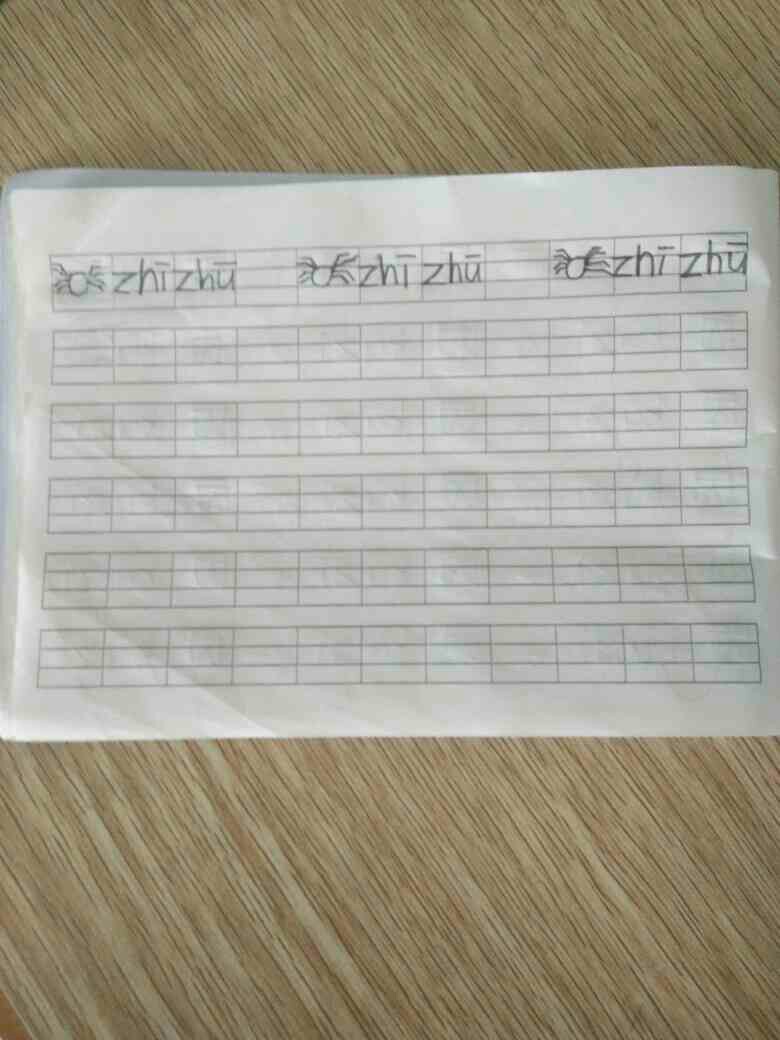 zhī zhū zhī zhū zhī zhū